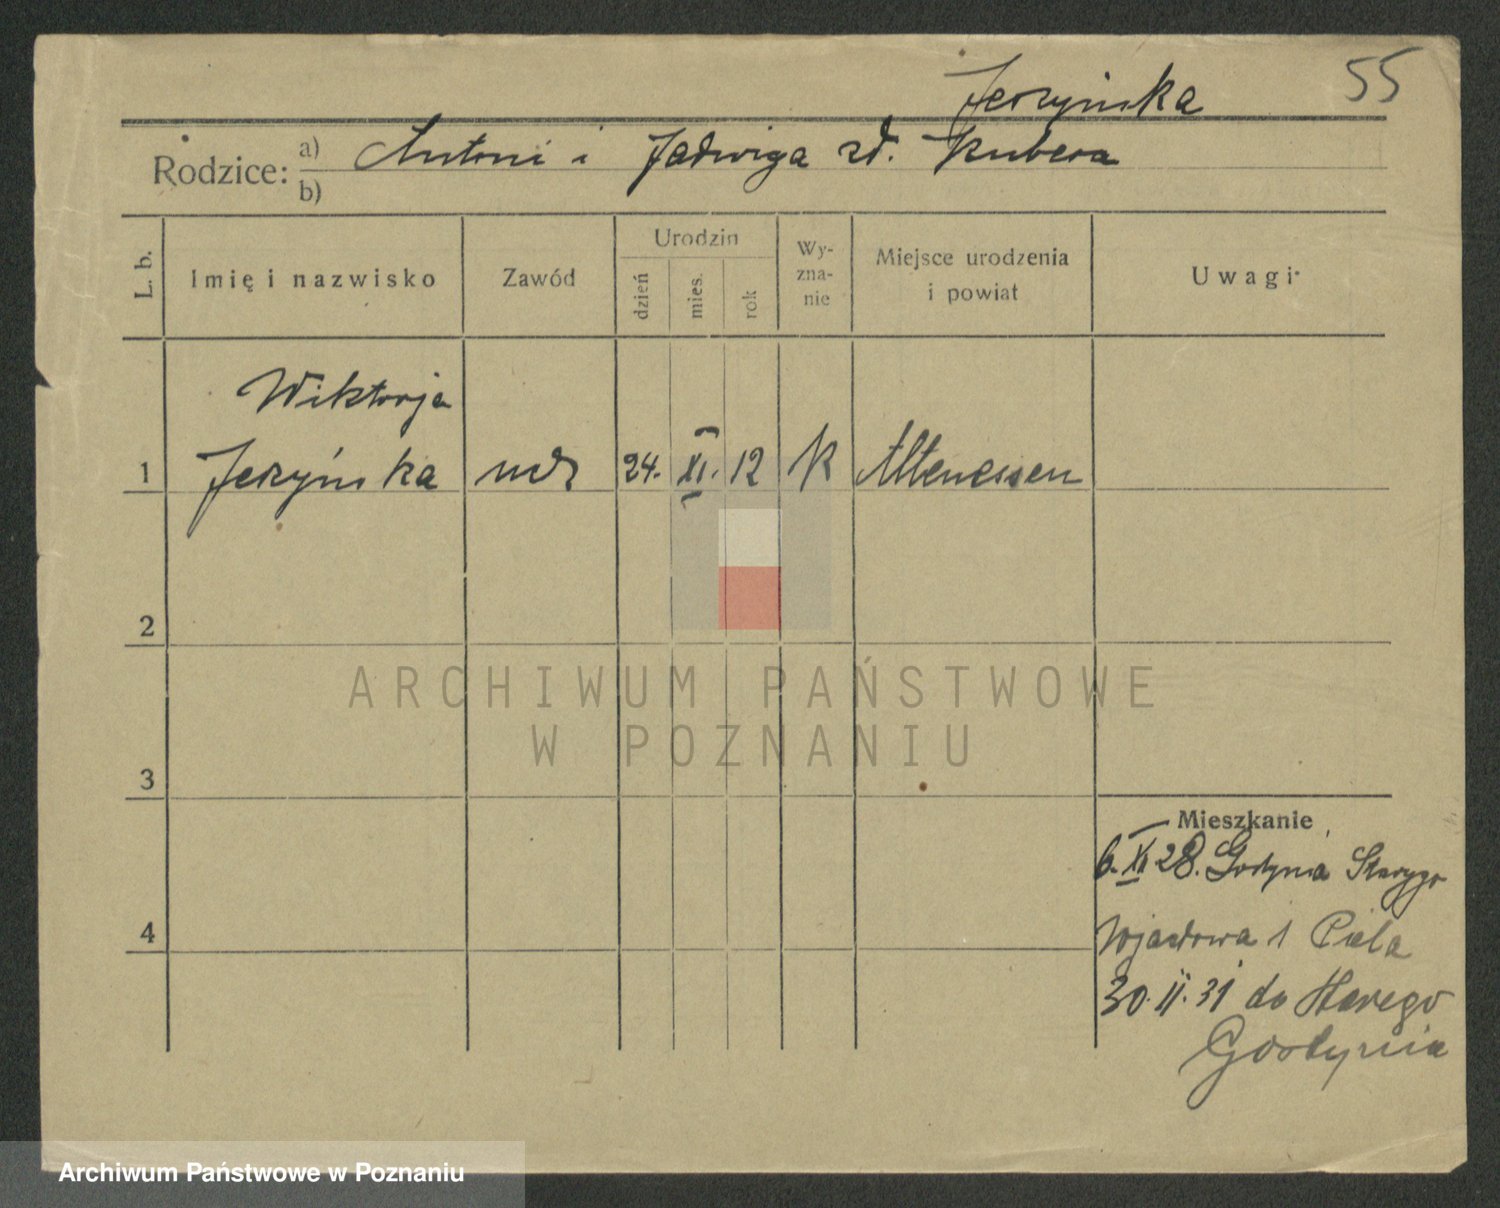 Jerzyńska 55
Rodzice: a) Antoni i Jadwiga zd. Kubera
b)
L. b. Imię i nazwisko Zawód Urodzin dzień mies. rok Wy-zna-nie Miejsce urodzenia i powiat Uwagi
Wiktorja
1 Jerzyńska 24. XI. 12 k Altenessen
2
ARCHIWUM PAŃSTWOWE
W POZNANIU
3
Mieszkanie
6. XI 28. Gostynia Starego
4 Wjazdowa 1
30. II. 31 do Starego
Gostynia
Archiwum Państwowe w Poznaniu